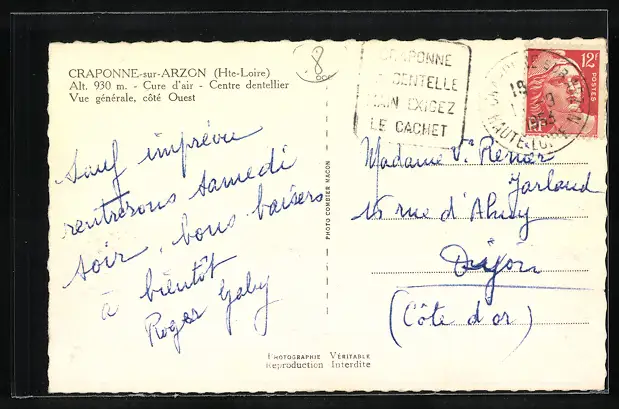 CRAPONNE-sur-ARZON (Hte-Loire)
Alt. 930 m. - Cure d'air - Centre dentellier
Vue générale, côté Ouest
8
Sauf imprévu
rentrerons samedi
soir, bons baisers
à bientôt
Roger Gaby
PHOTO COMBIER MACON
CRAPONNE
DENTELLE
MAIN EXIGEZ
LE CACHET
12F
POSTES
RF
HAUTE-LOIRE
Madame Ve Renier
Jarlaud
15 rue d'Ahuy
Dijon
(Côte d'or)
Photographie Véritable
Reproduction Interdite